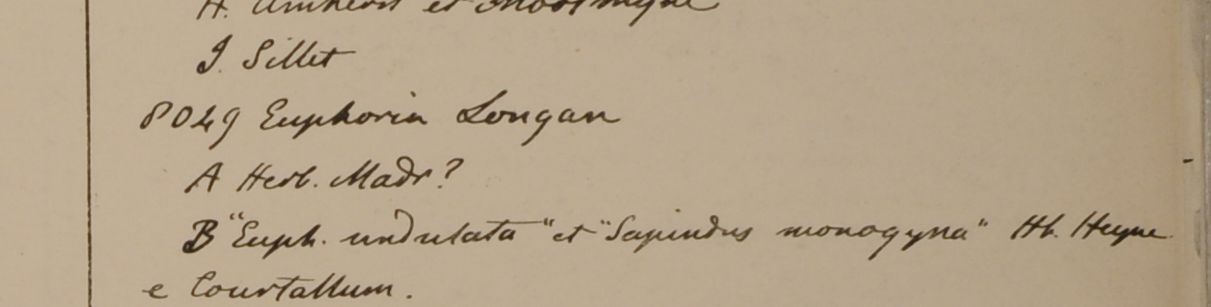 H. Amherst et Moolmyne
I. Sillet
8049 Euphoria Longan
A Herb. Madr?
B "Euph. undulata" et "Sapindus monogyna" Hb. Heyne
e Courtallum.